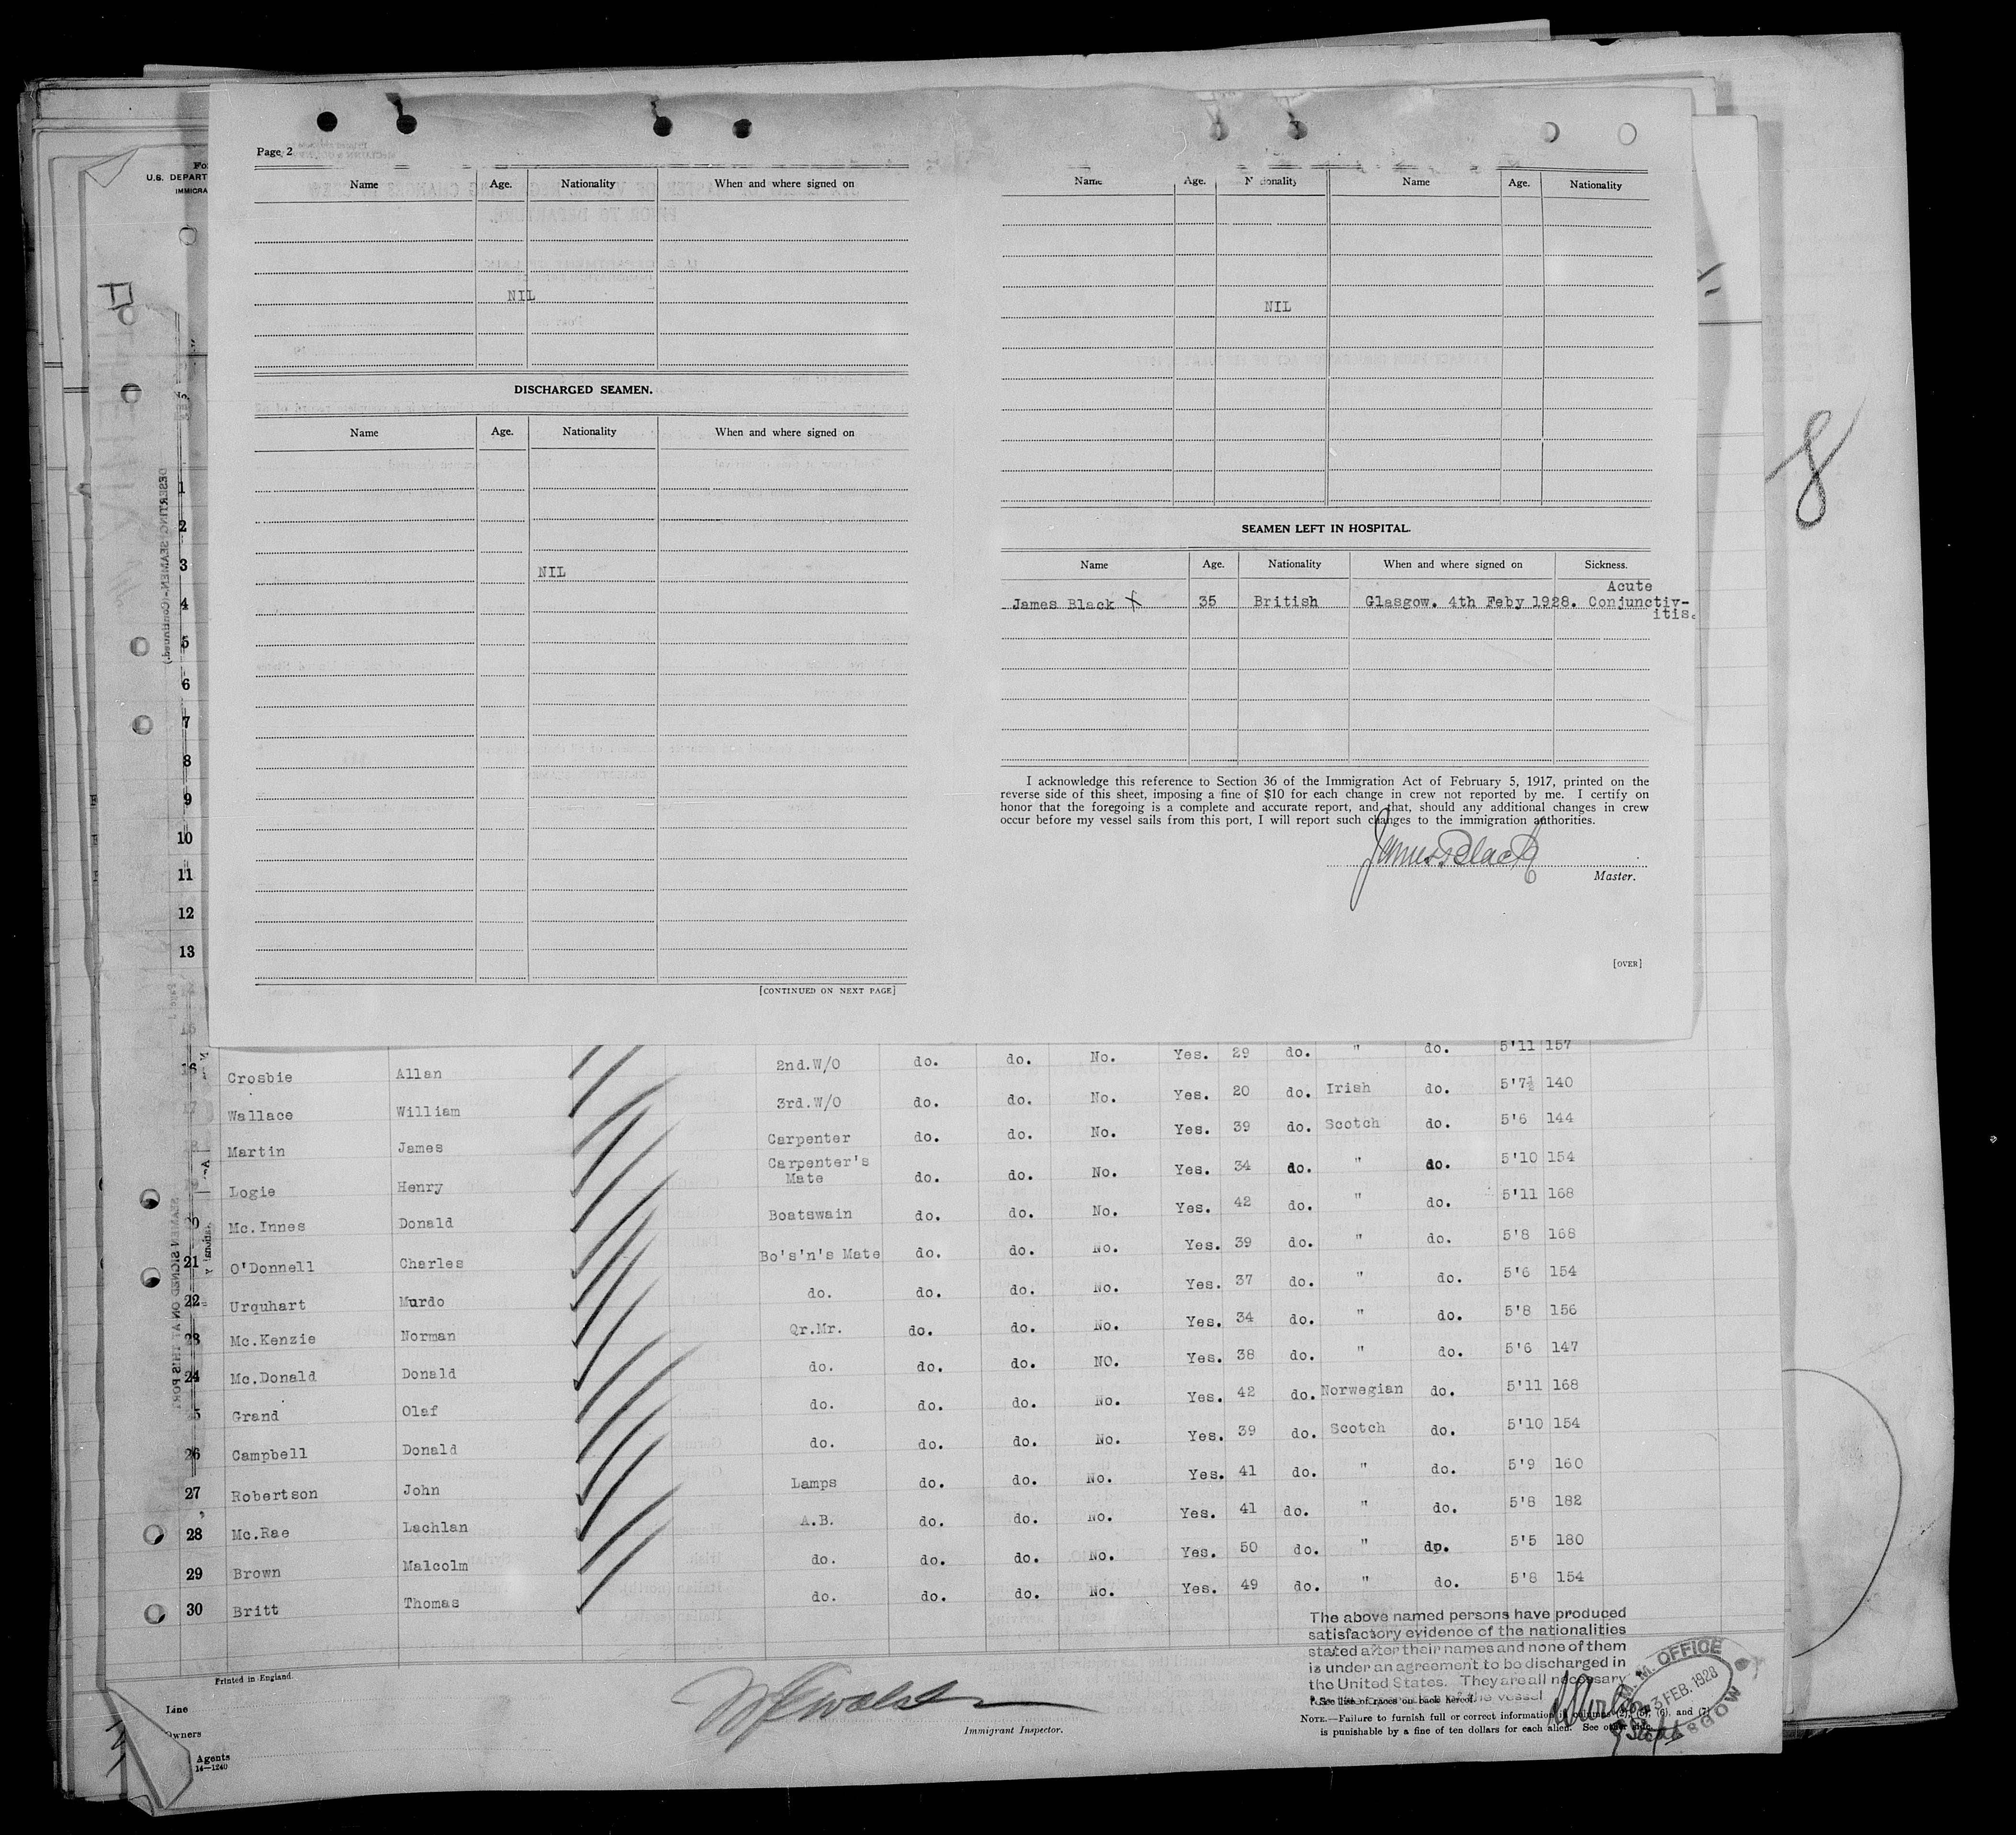 Page 2
Name Age. Nationality When and where signed on
NIL
DISCHARGED SEAMEN.
Name Age. Nationality When and where signed on
NIL
[CONTINUED ON NEXT PAGE]
Name Age. Nationality Name Age. Nationality
NIL
SEAMEN LEFT IN HOSPITAL.
Name Age. Nationality When and where signed on Sickness.
Acute
James Black x 35 British Glasgow. 4th Feby 1928. Conjunctiv-
itis.
I acknowledge this reference to Section 36 of the Immigration Act of February 5, 1917, printed on the
reverse side of this sheet, imposing a fine of $10 for each change in crew not reported by me. I certify on
honor that the foregoing is a complete and accurate report, and that, should any additional changes in crew
occur before my vessel sails from this port, I will report such changes to the immigration authorities.
James Black
Master.
[OVER]
8
U.S. DEPART
IMMIGRA
1
2
3
4
5
6
7
8
9
10
11
12
13
16 Crosbie Allan 2nd.W/O do. do. No. Yes. 29 do. " do. 5'11 157
17 Wallace William 3rd.W/O do. do. No. Yes. 20 do. Irish do. 5'7½ 140
18 Martin James Carpenter do. do. No. Yes. 39 do. Scotch do. 5'6 144
19 Logie Henry Carpenter's Mate do. do. No. Yes. 34 do. " do. 5'10 154
20 Mc.Innes Donald Boatswain do. do. No. Yes. 42 do. " do. 5'11 168
21 O'Donnell Charles Bo's'n's Mate do. do. No. Yes. 39 do. " do. 5'8 168
22 Urquhart Murdo do. do. do. No. Yes. 37 do. " do. 5'6 154
23 Mc.Kenzie Norman Qr.Mr. do. do. No. Yes. 34 do. " do. 5'8 156
24 Mc.Donald Donald do. do. do. NO. Yes. 38 do. " do. 5'6 147
25 Grand Olaf do. do. do. No. Yes. 42 do. Norwegian do. 5'11 168
26 Campbell Donald do. do. do. No. Yes. 39 do. Scotch do. 5'10 154
27 Robertson John Lamps do. do. No. Yes. 41 do. " do. 5'9 160
28 Mc.Rae Lachlan A.B. do. do. No. Yes. 41 do. " do. 5'8 182
29 Brown Malcolm do. do. do. No. Yes. 50 do. " do. 5'5 180
30 Britt Thomas do. do. do. No. Yes. 49 do. " do. 5'8 154
The above named persons have produced
satisfactory evidence of the nationalities
stated after their names and none of them
is under an agreement to be discharged in
the United States. They are all necessary
of the vessel
* See list of races on back hereof.
NOTE.—Failure to furnish full or correct information in columns (2), (5), (6), and (7)
is punishable by a fine of ten dollars for each alien. See other side.
M. M. OFFICE
3 FEB. 1928
GLASGOW
Printed in England.
Line
Owners
Agents
14—1240
Immigrant Inspector.